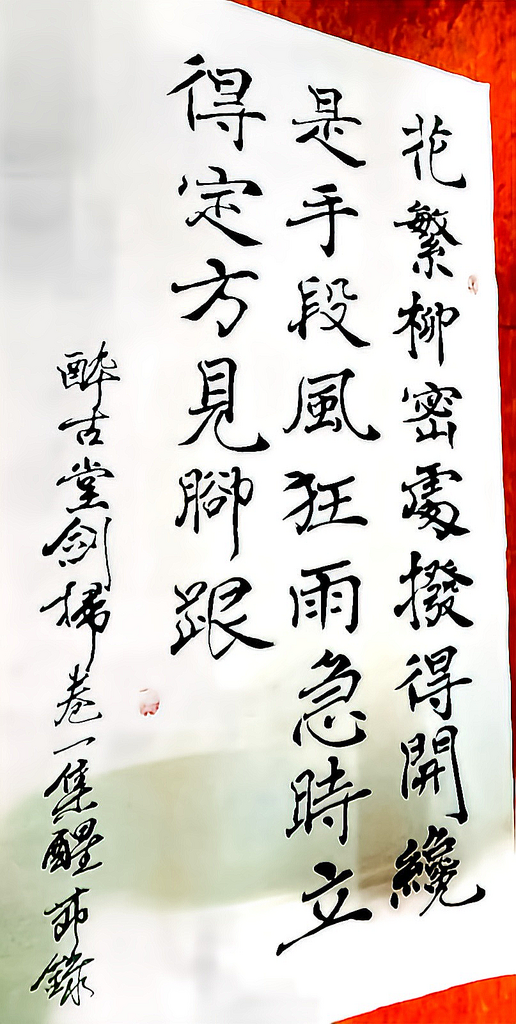 花繁柳密處撥得開纔
是手段風狂雨急時立
得定方見腳跟
醉古堂劍掃卷一集醒 錄